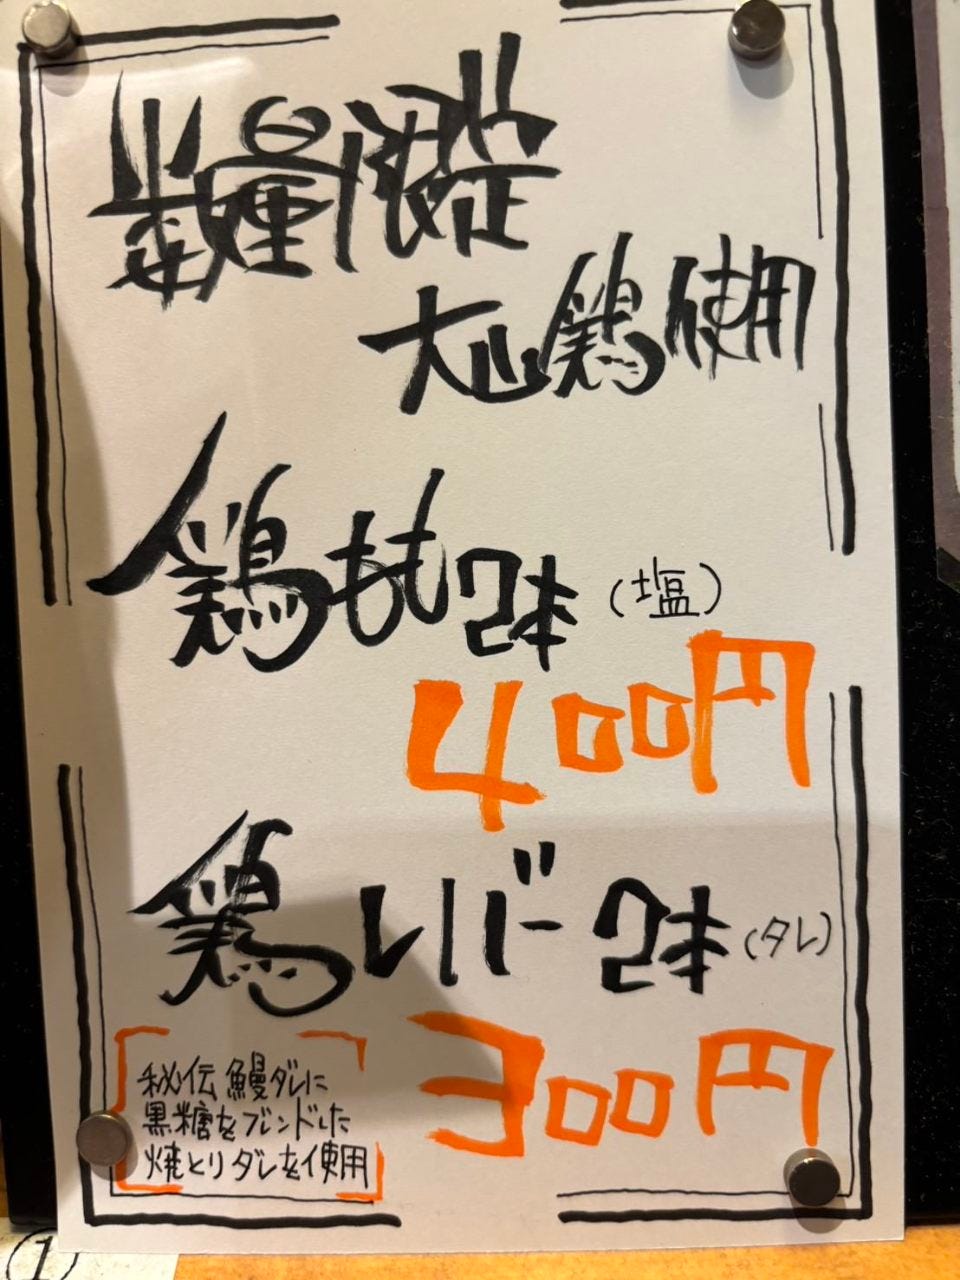 数量限定
大山鶏使用
鶏もも2本(塩)
400円
鶏レバー2本(タレ)
300円
秘伝鰻ダレに
黒糖をブレンドした
焼とりダレを使用
1